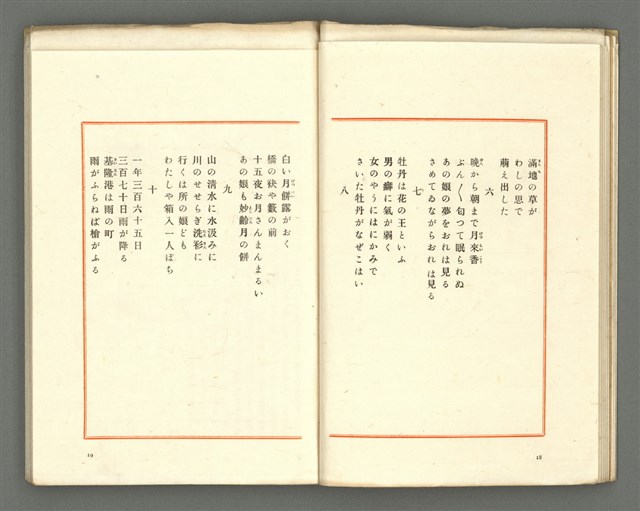 滿地の草が
わしの思で
萌え出した
六
晩から朝まで月來香
ぷん／＼匂つて眠られぬ
あの娘の夢をおれは見る
さめてゐながらおれは見る
七
牡丹は花の王といふ
男の癖に氣が弱く
女のやうにはにかみで
さいた牡丹がなぜこはい
八
18
白い月餅露がおく
橋の袂や藪の前
十五夜お月さんまんまるい
あの娘も妙齡月の餅
九
山の清水に水汲みに
川のせせらぎ洗彩に
行くは所の娘ども
わたしや箱入一人ぼち
十
一年三百六十五日
三百七十日雨が降る
基隆港は雨の町
雨がふらねば槍がふる
19